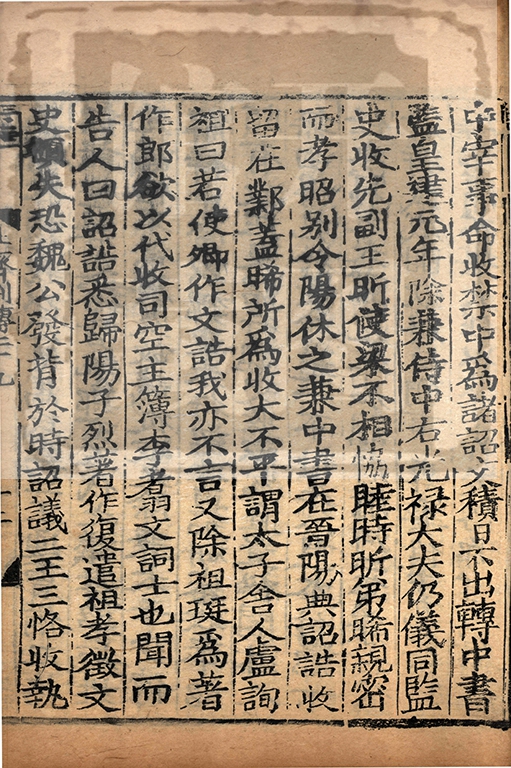 中宰事命收禁中爲諸詔文積日不出轉中書
監皇建元年除兼侍中右光禄大夫仍儀同監
史收先副王昕使梁不相協睦時昕弟晞親密
而孝昭别令陽休之兼中書在晉陽典詔誥收
留在鄴蓋晞所爲收大不平謂太子舍人盧詢
祖曰若使卿作文誥我亦不言又除祖珽爲著
作郎欲以代收司空主簿李翥文詞士也聞而
告人曰詔誥悉歸陽子烈著作復遣祖孝徵文
史頓失恐魏公發背於時詔議二王三恪收執